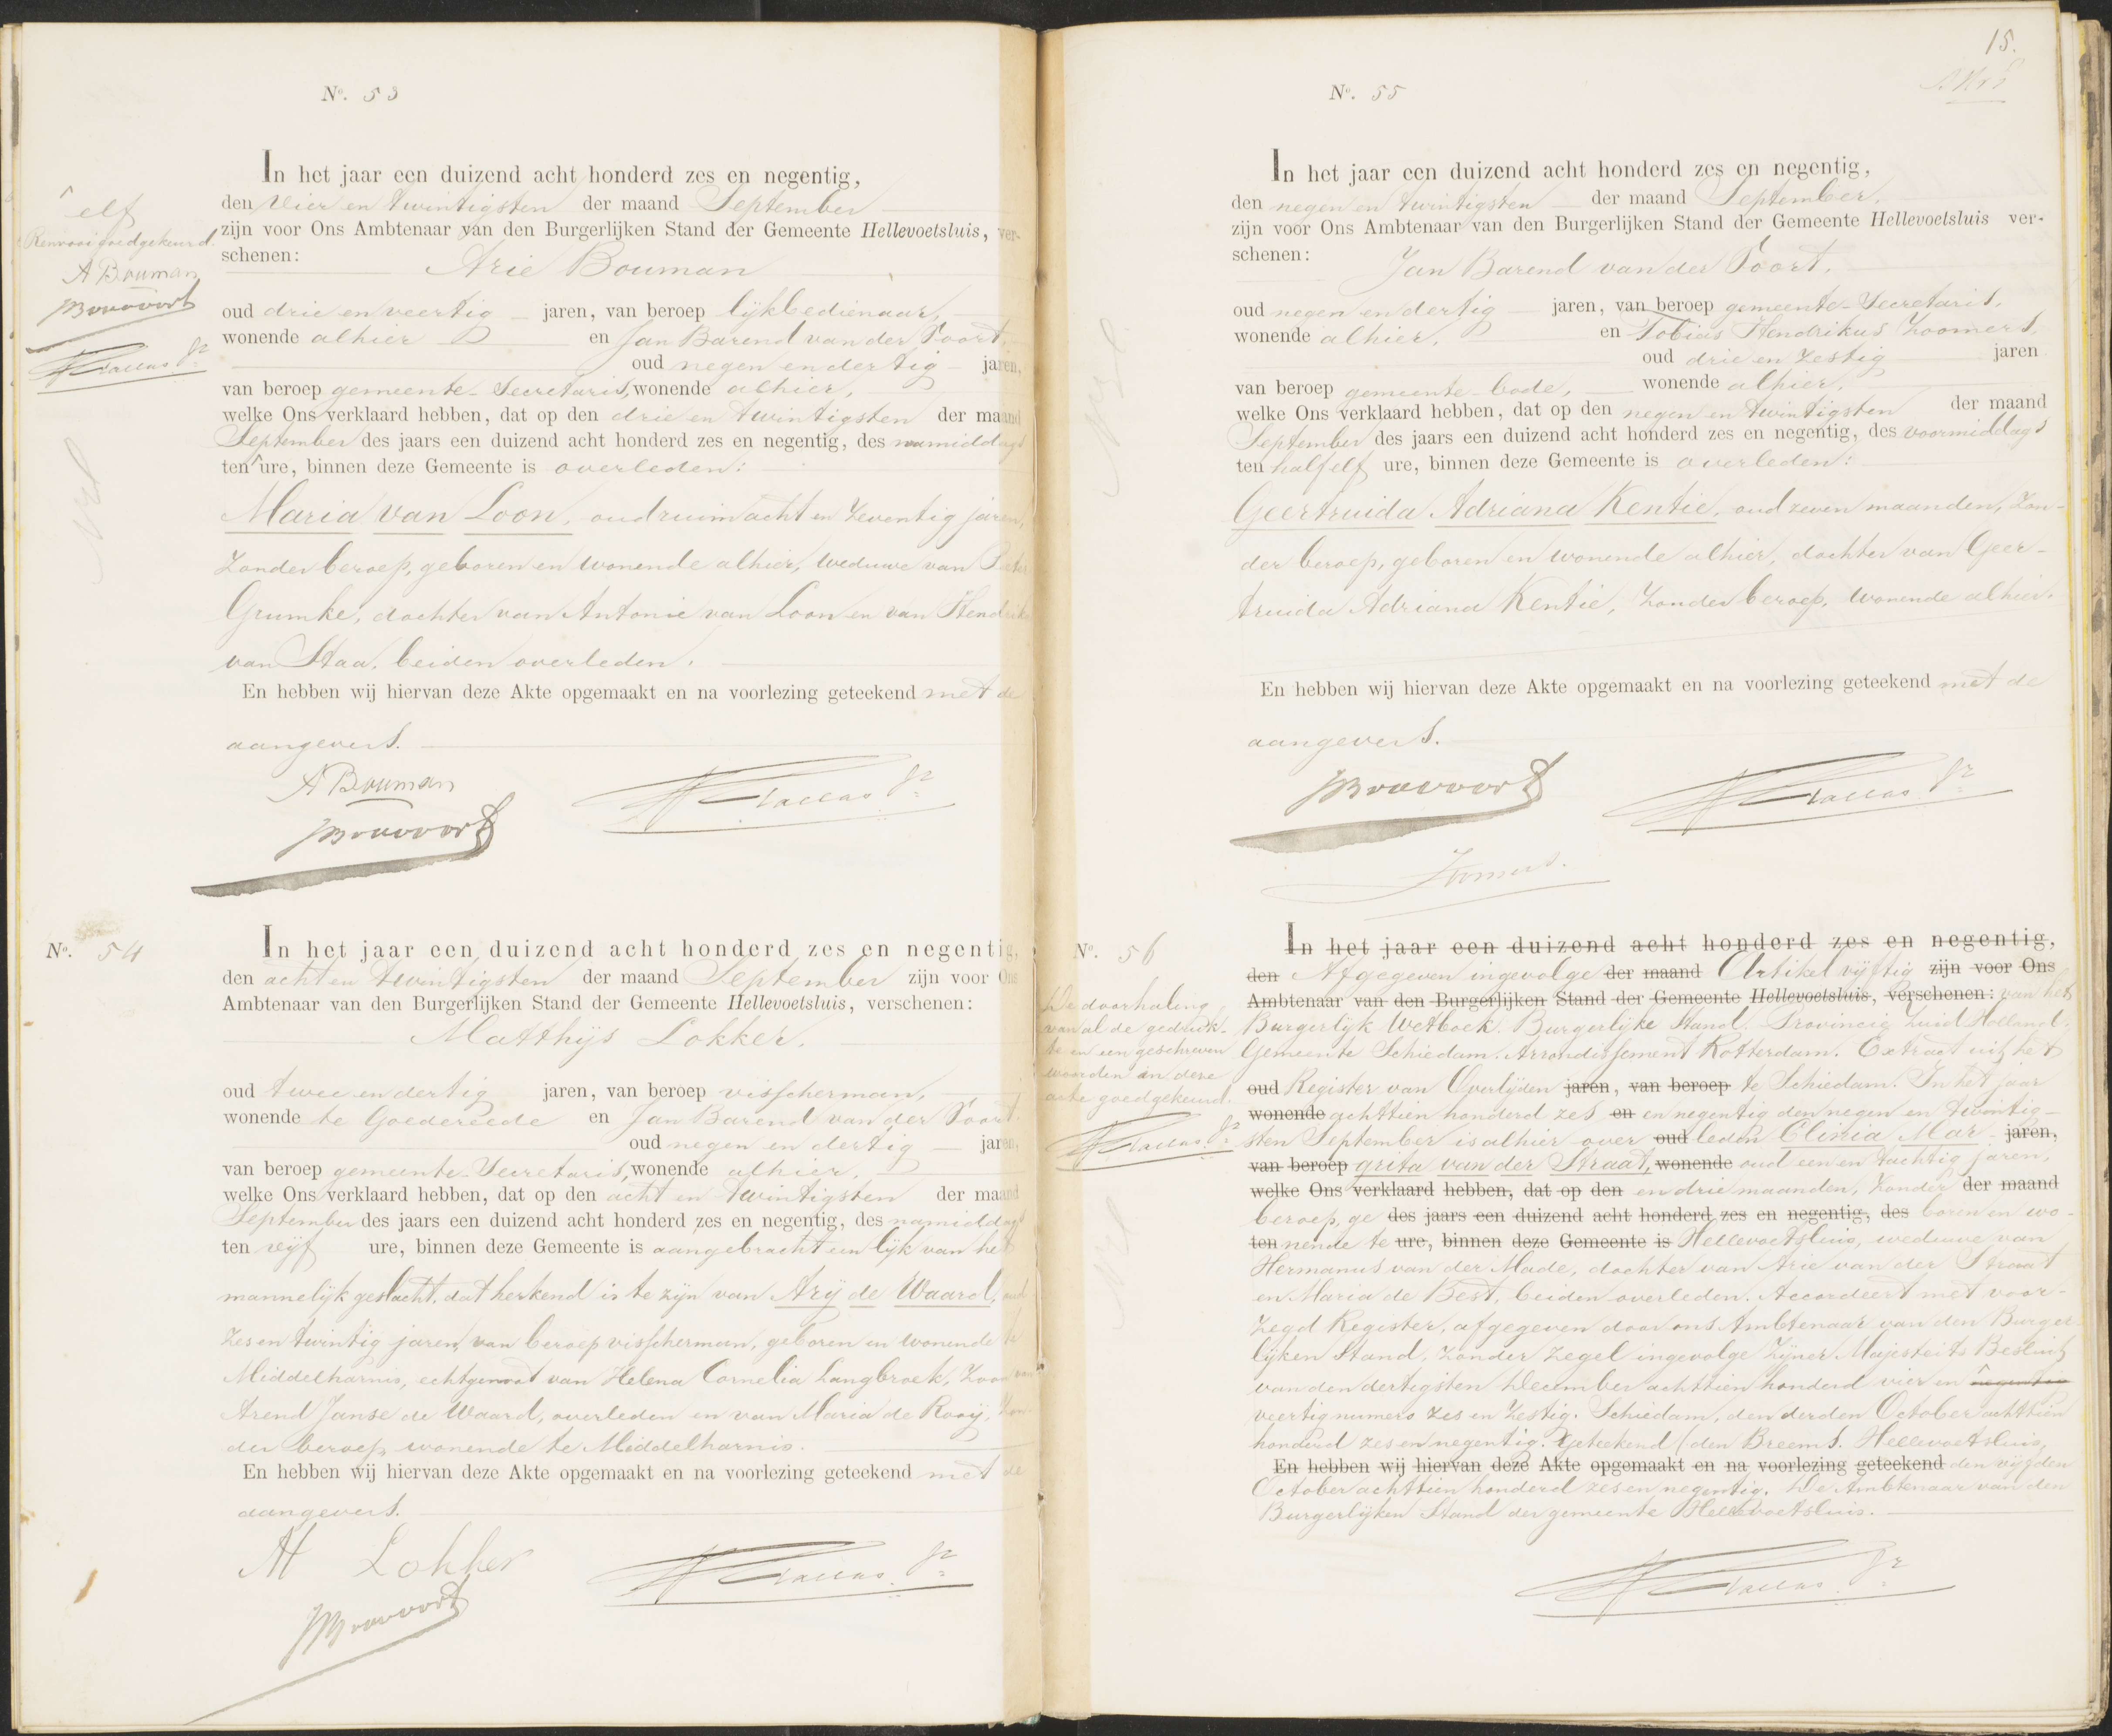 Nº. 53
In het jaar een duizend acht honderd zes en negentig,
den vier en twintigsten der maand September
zijn voor Ons Ambtenaar van den Burgerlijken Stand der Gemeente Hellevoetsluis, ver-
schenen: Arie Bouman
oud drie en veertig jaren, van beroep lijkbedienaar,
wonende alhier en Jan Barend van der Voort,
oud negen en dertig jaren,
van beroep gemeente-Secretaris, wonende alhier,
welke Ons verklaard hebben, dat op den drie en twintigsten der maand
September des jaars een duizend acht honderd zes en negentig, des namiddags
ten ure, binnen deze Gemeente is overleden:
Maria van Loon, oud ruim acht en zeventig jaren,
zonder beroep, geboren en wonende alhier, weduwe van Pieter
Grumke, dochter van Antonie van Loon en van Hendrika
van Staa, beiden overleden.
En hebben wij hiervan deze Akte opgemaakt en na voorlezing geteekend met de
aangevers.
A Bouman
elf
Renvooi goedgekeurd.
A Bouman
Nº. 54
In het jaar een duizend acht honderd zes en negentig,
den acht en twintigsten der maand September zijn voor Ons
Ambtenaar van den Burgerlijken Stand der Gemeente Hellevoetsluis, verschenen:
Matthijs Lokker.
oud twee en dertig jaren, van beroep visscherman,
wonende te Goedereede en Jan Barend van der Voort
oud negen en dertig jaren,
van beroep gemeente-Secretaris, wonende alhier,
welke Ons verklaard hebben, dat op den acht en twintigsten der maand
September des jaars een duizend acht honderd zes en negentig, des namiddags
ten vijf ure, binnen deze Gemeente is aangebracht een lijk van het
mannelijk geslacht, dat herkend is te zijn van Arij de Waard, oud
zes en twintig jaren, van beroep visscherman, geboren en wonende te
Middelharnis, echtgenoot van Helena Cornelia Langbroek, zoon van
Arend Janse de Waard, overleden en van Maria de Rooij, zon-
der beroep, wonende te Middelharnis.
En hebben wij hiervan deze Akte opgemaakt en na voorlezing geteekend met de
aangevers.
M Lokker
15.
Nº. 55
In het jaar een duizend acht honderd zes en negentig,
den negen en twintigsten der maand September,
zijn voor Ons Ambtenaar van den Burgerlijken Stand der Gemeente Hellevoetsluis ver-
schenen: Jan Barend van der Voort,
oud negen en dertig jaren, van beroep gemeente-Secretaris,
wonende alhier, en Tobias Hendrikus Zoomers,
oud drie en zestig jaren
van beroep gemeente-bode, wonende alhier,
welke Ons verklaard hebben, dat op den negen en twintigsten der maand
September des jaars een duizend acht honderd zes en negentig, des voormiddags
ten half elf ure, binnen deze Gemeente is overleden:
Geertruida Adriana Kentie, oud zeven maanden, zon-
der beroep, geboren en wonende alhier, dochter van Geer-
truida Adriana Kentie, zonder beroep, wonende alhier.
En hebben wij hiervan deze Akte opgemaakt en na voorlezing geteekend met de
aangevers.
Nº. 56
De doorhaling
van al de gedruk-
te en een geschreven
woorden in deze
acte goedgekeurd.
In het jaar een duizend acht honderd zes en negentig,
den Afgegeven ingevolge der maand Artikel vijftig zijn voor Ons
Ambtenaar van den Burgerlijken Stand der Gemeente Hellevoetsluis, verschenen: van het
Burgerlijk Wetboek. Burgerlijke Stand. Provincie Zuid Holland.
Gemeente Schiedam. Arrondissement Rotterdam. Extract uit het
oud Register van Overlijden jaren, van beroep te Schiedam. In het jaar
wonende achttien honderd zes en en negentig den negen en twintig-
sten September is alhier over oud leden Clinia Mar- jaren,
van beroep grita van der Straat, wonende oud een en tachtig jaren,
welke Ons verklaard hebben, dat op den en drie maanden, zonder der maand
beroep, ge des jaars een duizend acht honderd zes en negentig, des boren en wo-
ten nende te ure, binnen deze Gemeente is Hellevoetsluis, weduwe van
Hermanus van der Made, dochter van Arie van der Straat
en Maria de Best, beiden overleden. Accordeert met voor-
zegd Register, afgegeven door ons Ambtenaar van den Burger-
lijken Stand, zonder zegel ingevolge Zijner Majesteits Besluit
van den dertigsten December achttien honderd vier en negentien
veertig numero zes en zestig. Schiedam, den derden October achttien
honderd zes en negentig. Geteekend (den Breems. Hellevoetsluis,
En hebben wij hiervan deze Akte opgemaakt en na voorlezing geteekend den vijfden
October achttien honderd zes en negentig. De Ambtenaar van den
Burgerlijken Stand der gemeente Hellevoetsluis.